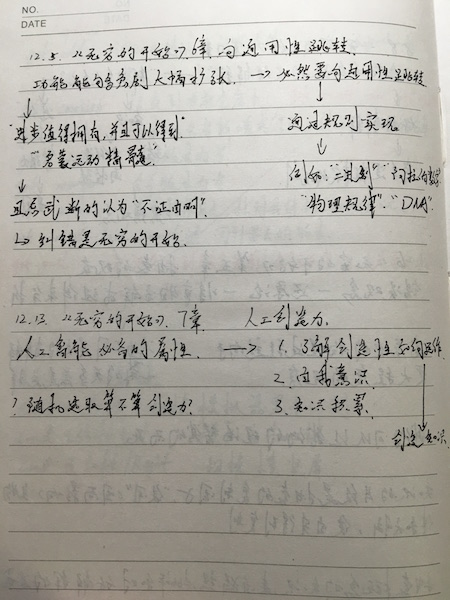 NO.
DATE
12.5. 《无穷的开始》6章 向通用性跳转
功能的急剧大幅扩张 → 必然是向通用性跳转
↓ ↓
"进步值得拥有,并且可以得到" 通过规则实现
"启蒙运动精髓" ↓
↓ 例如:"二进制" "阿拉伯数字"
且忌武断的认为"不证自明". "物理规律". "DNA"
↳ 纠错是无穷的开始.
12.13. 《无穷的开始》7章 人工创造力.
人工智能必备的属性. → 1. 了解创造性如何运作
2. 自我意识
? 随机选取算不算创造力? 3. 知识积累
创造知识